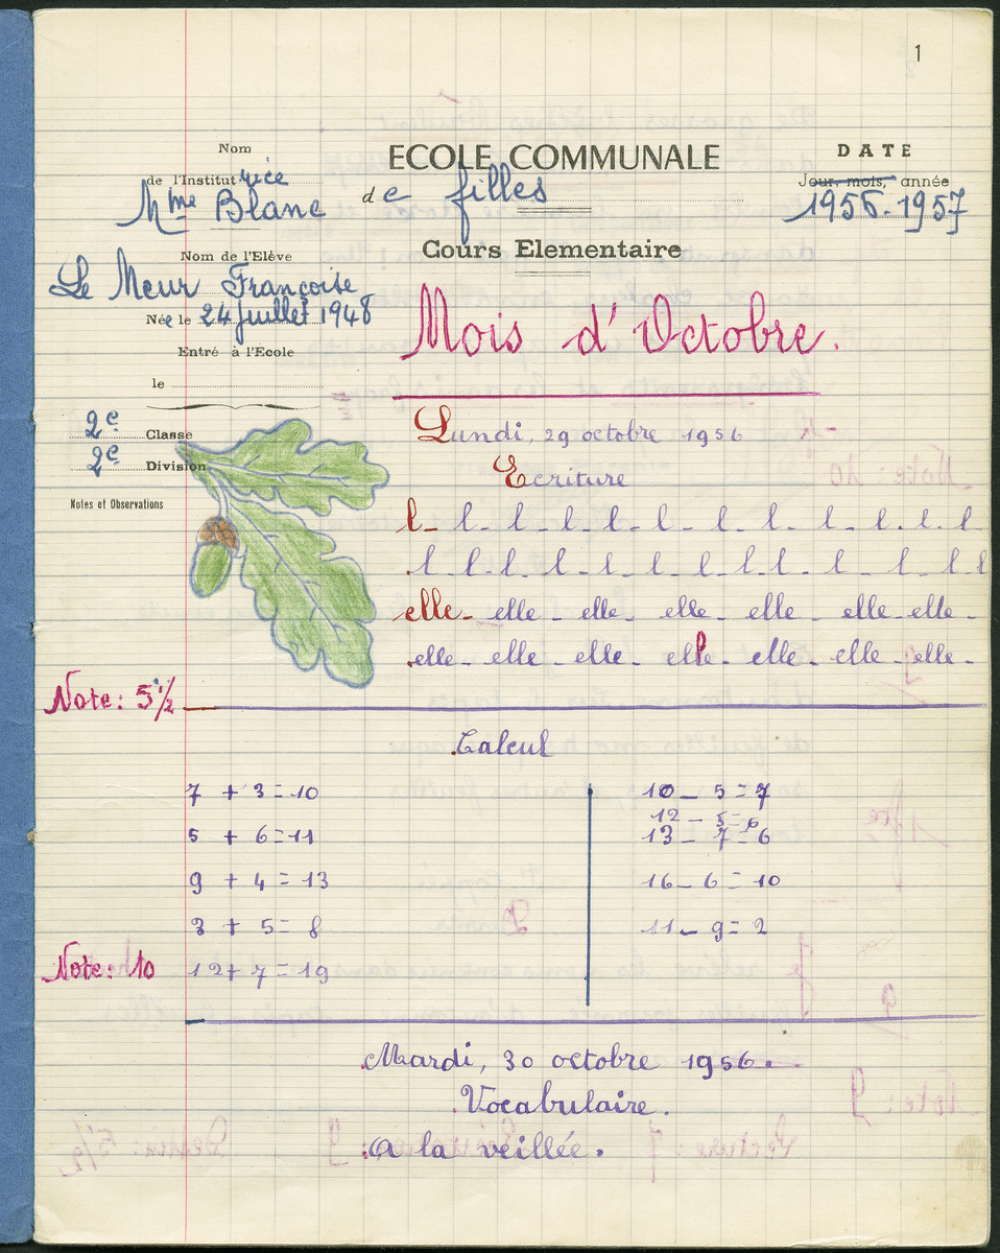 1
Nom
de l'Institutrice
Mme Blanc
ECOLE COMMUNALE
de filles
DATE
Jour, mois, année
1956-1957
Cours Elementaire
Nom de l'Elève
Le Meur Françoise
Née le 24 juillet 1948
Entré à l'Ecole
le
Mois d'Octobre.
2e Classe
2e Division
Notes et Observations
Lundi, 29 octobre 1956
Ecriture
l_ l_ l_ l_ l_ l_ l_ l_ l_ l. l. l
l_ l_ l_ l_ l_ l_ l_ l_ l_ l_ l_ l_ l
elle_ elle_ elle_ elle_ elle_ elle_ elle_
elle_ elle_ elle_ elle_ elle_ elle_ elle_
Note: 5 1/2
Calcul
7 + 3 = 10
5 + 6 = 11
9 + 4 = 13
3 + 5 = 8
12 + 7 = 19
10 _ 5 = 5
12 _ 5 = 6
13 _ 7 = 6
16 _ 6 = 10
11 _ 9 = 2
Note: 10
Mardi, 30 octobre 1956.
Vocabulaire.
A la veillée.